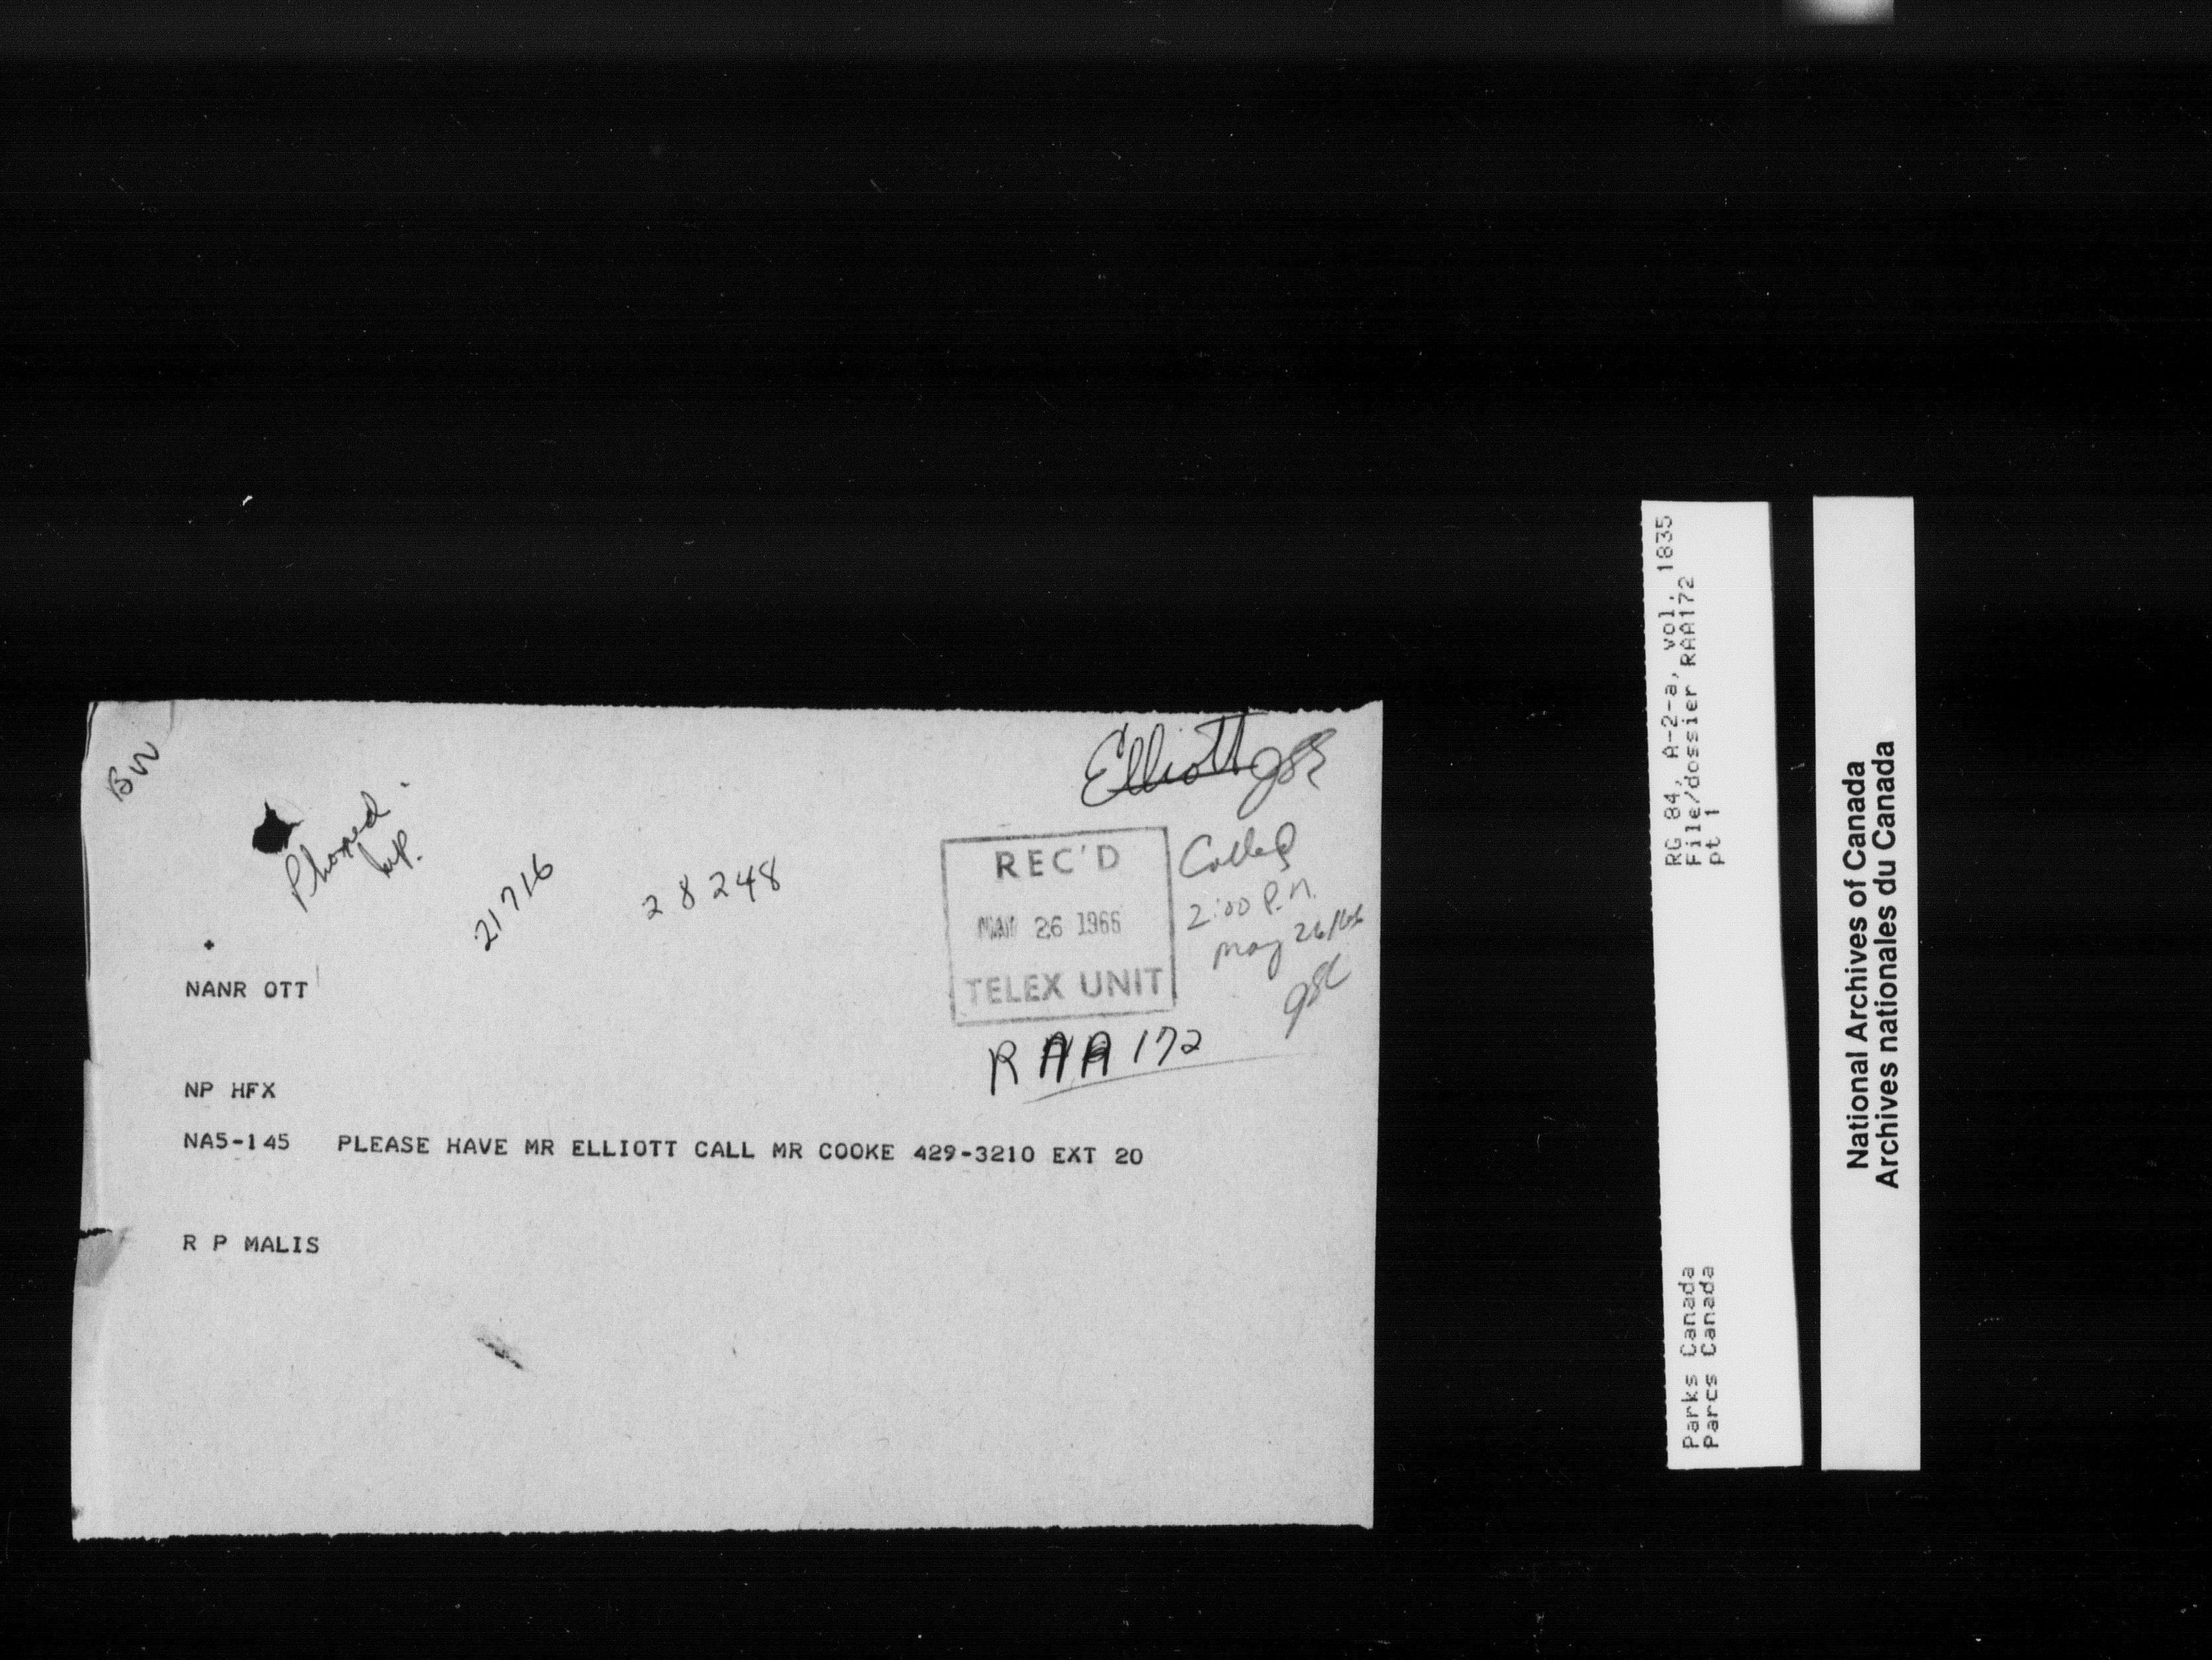 BW
Elliott
Phoned
21716
28248
REC'D
MAY 26 1966
TELEX UNIT
Called
2:00 P.M.
May 26/66
NANR OTT
RAA172
NP HFX
NA5-145 PLEASE HAVE MR ELLIOTT CALL MR COOKE 429-3210 EXT 20
R P MALIS
RG 84, A-2-a, vol. 1835
File/dossier RAA172
pt 1
Parks Canada
Parcs Canada
National Archives of Canada
Archives nationales du Canada